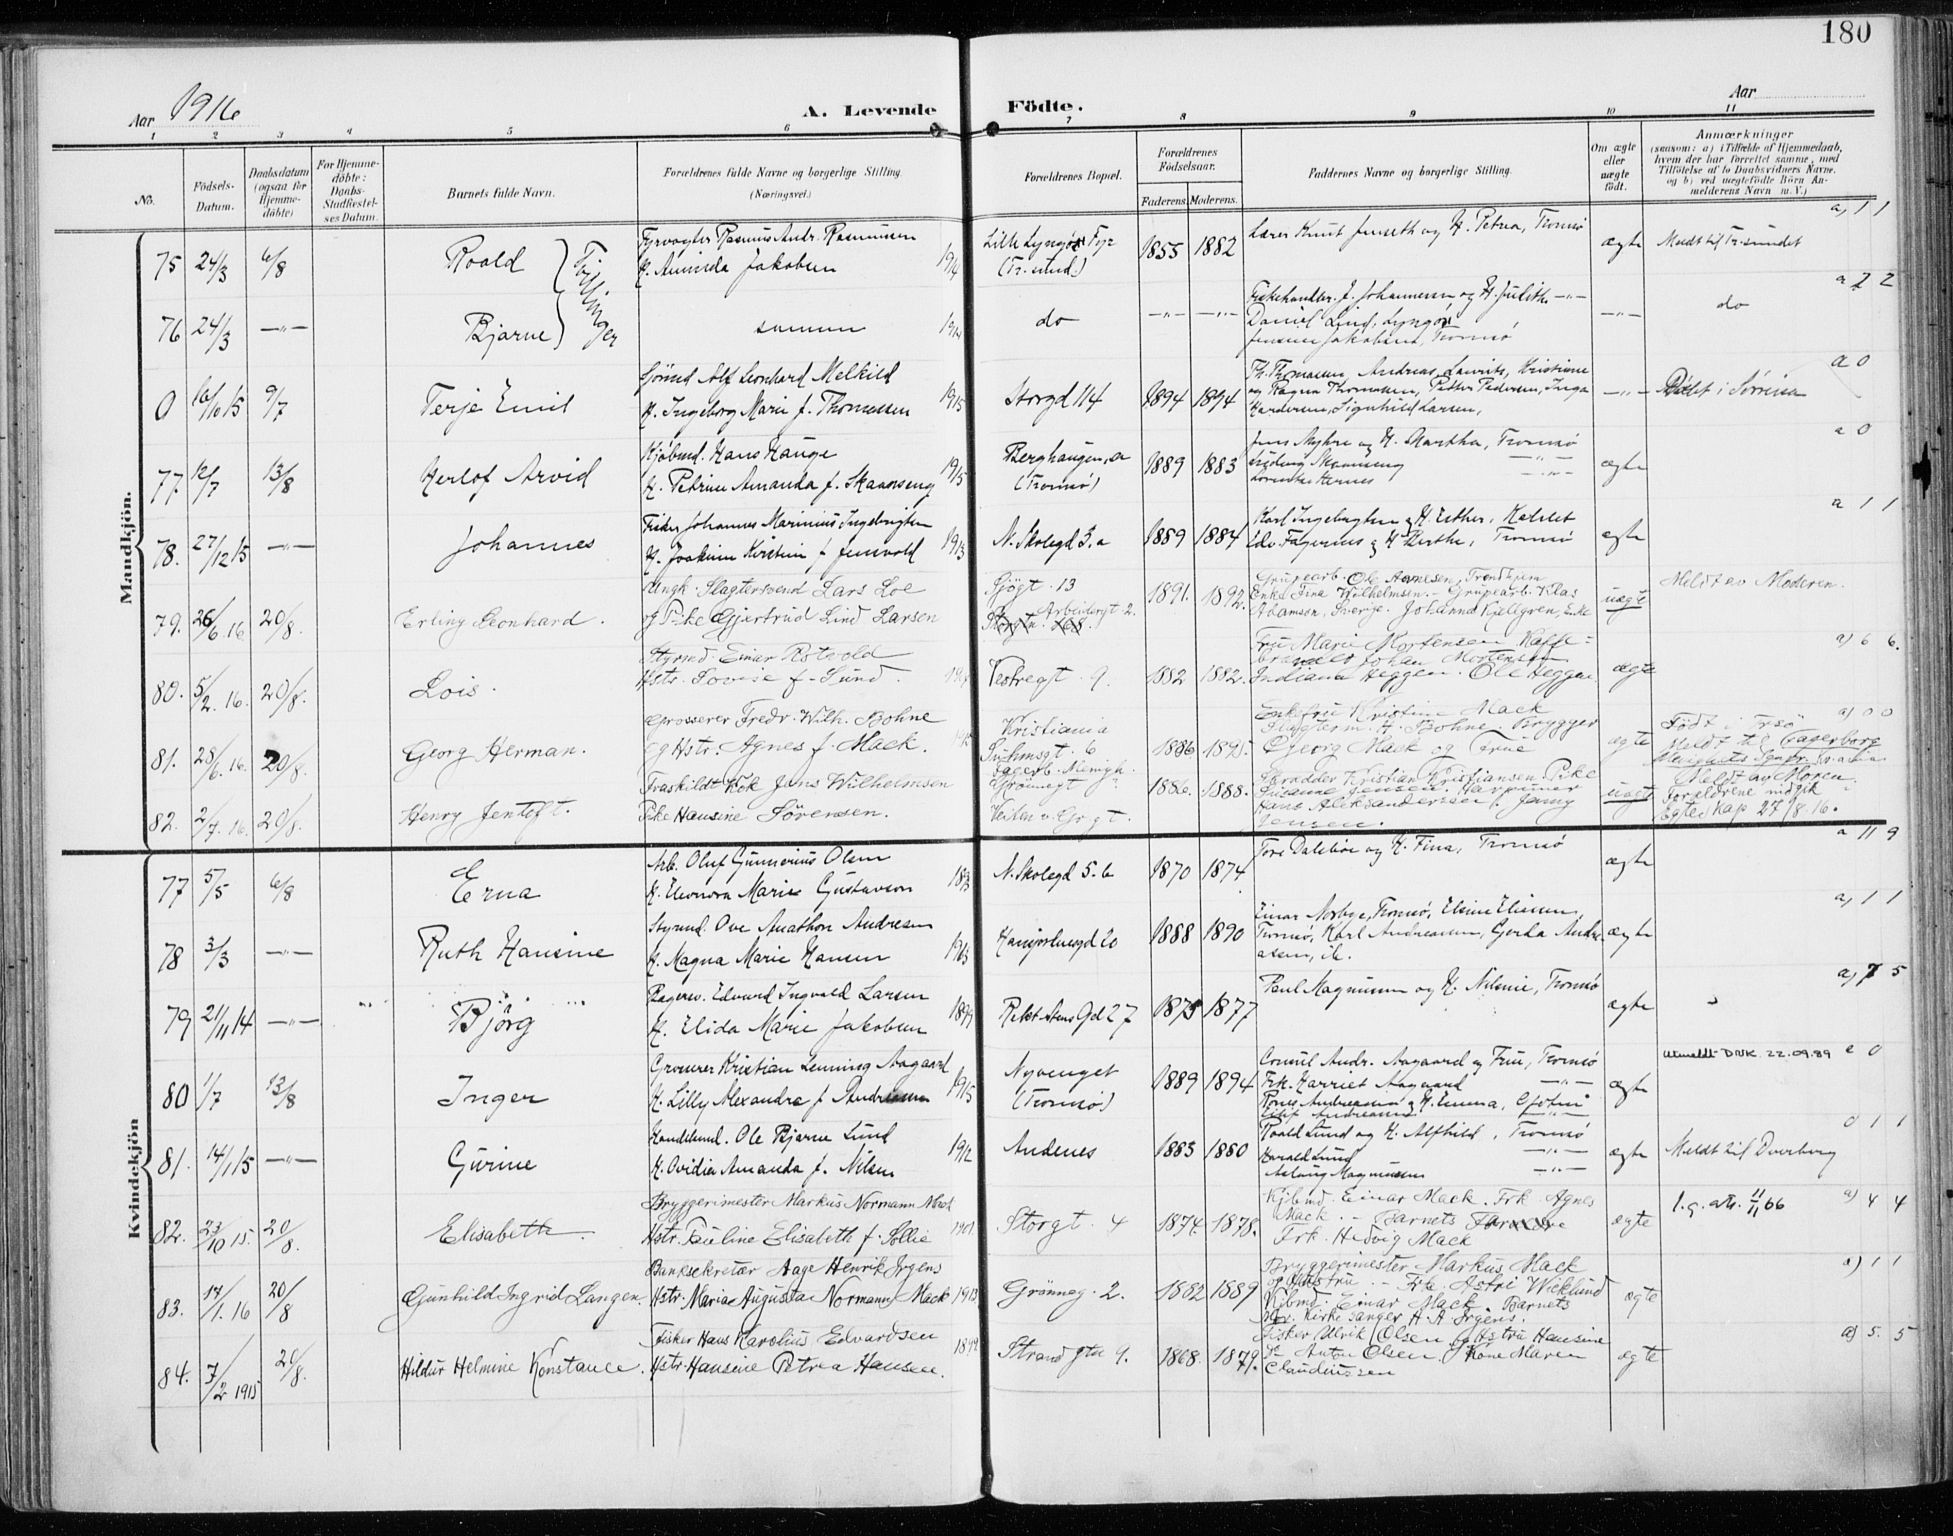 180
Aar 1916
A. Levende Födte.
Aar
1 2 3 4 5 6 7 8 9 10 11
No.
Födsels-Datum.
Daabsdatum (ogsaa for Hjemme-döbte)
For Hjemme-döbte: Daabs-Stadfæstel-ses Datum.
Barnets fulde Navn.
Forældrenes fulde Navne og borgerlige Stilling. (Næringsvei.)
Forældrenes Bopæl.
Forældrenes Födselsaar.
Faderens. Moderens.
Faddernes Navne og borgerlige Stilling.
Om ægte eller uægte födt.
Anmærkninger
(saasom: a) i Tilfælde af Hjemmedaab, hvem der har forrettet samme, med Tilföielse af to Daabsvidners Navne, og b) ved uægtefödte Börn An-melderens Navn m. V.)
Mandkjön.
75 24/3 6/8 Roald Tvillinger
Fyrvogter Rasmus Andr. Rasmussen
H. Aminda Jakobsen 1914
Lille Lyngö Fyr
(Tr.sund.) 1855 1882
Lærer Knut Jenseth og H. Petrea, Tromsö
ægte Meldt til Tr.sundet a, 1 1
76 24/3 —"— Bjarne samme 1914 do —"— —"—
Fiskehandler J. Johannesen og H. Julith —"—
Daniel Lind, Lyngör
Jensine Jakobsen, Tromsö
—"— do a 2 2
0 16/10 15 9/7 Terje Emil
Sjömd Alf Leonhard Melkild
H. Ingeborg Marie f. Thomassen 1915
Storgd 114 1894 1894
Th. Thomassen, Andreas, Laurits, Kristiane
og Ragna Thomassen, Petter Pedersen, Inga
Hardersen, Signhild Larsen,
—"— Döbt i Sörreisa a 0
77. 12/7 13/8 Herlof Arvid
Kjöbmd. Hans Hauge
H. Petrine Amanda f. Skaanseng 1915
Berghaugen, a
(Tromsö) 1889 1883
Jens Myhre og H. Martha, Tromsö
ægte a 0
78. 27/12 15 —"— Johannes
Fisker Johannes Marinius Ingebrigtsen
H. Joakime Kirstine f. Jensvold 1913
N. Skolegd 3. a 1889 1884
Karl Ingebrigtsen og H. Esther,
Edv. Fagernes og H. Berthe, Tromsö
ægte a 1 1
79. 26/6. 16 20/8. Erling Leonhard.
Ungk. Slagtersvend Lars Loe
og Pike Gjertrud Lind Larsen
Sjögt. 13
Arbeidergt 2.
1891. 1892.
Grupearb. Ole Arnesen, Trondhjem
Enke Fina Wilhelmsen. - Grupearb. Klas
Adamsen, Sverge. Johanna Kjellgren, Enke
uægte Meldt av Moderen.
80. 5/2. 16. 20/8. Lois.
Styrmd. Einar Rotvold
Hstr. Lovise f. Lund.
Vestregt. 9. 1882 1882.
Fru Marie Mortensen Kaffe-
brænder Johan Mortensen
Indiana Heggen. Ole Heggen
ægte a) 6 6.
81. 28/6. 16. 20/8. Georg Herman.
Grosserer Fredr. Wilh. Bohne
og Hstr. Agnes f. Mack.
Kristiania
Suhmsgt. 6
Fagerb. Menigh. 1886 1895.
Enkefru Kristine Mack
Slagterm. H. Bohne. Brygger
Georg Mack og Frue
ægte Födt i Trsö
Meldt til Fagerborg
a) 0 0
82. 2/7. 16. 20/8. Henry Jentoft.
Fraskildt Kok Jens Wilhelmsen
Pike Hansine Sörensen.
Grönnegt
Veiten v. Gr gt. 1886. 1888.
Skrædder Kristian Kristiansen. Pike
Susanne Jensen. Harpuner
Hans Aleksandersen. Jenny
Jensen.
uægt Meldt av Moren.
Forældrene indgik i
Egteskap 27/8. 16.
Kvindekjön
77 5/5 6/8 Erna
Arb. Oluf Gunnerius Olsen
H. Eleonora Marie Gustavson 1893
N. Skolegd 5. b 1870 1874
Tore Dalebön og H. Fina, Tromsö
ægte a 11 9
78 3/3 —"— Ruth Hansine
Styrmd. Ove Anathon Andresen
H. Magna Marie Hansen 1913
Hansjordnesgd 20 1888 1890
Einar Norbye, Tromsö, Elsine Eliassen,
Tromsö, Karl Andreassen, Gerda Andre-
asen, ib.
ægte a, 1 1
79 21/11 14 —"— Björg
Bagersv. Edvard Ingvald Larsen
H. Elida Marie Jakobsen 1899
Rekstens Gd 27 1875 1877
Paul Magnussen og H. Nilsine, Tromsö
ægte a, 7 5
80 1/7 13/8 Inger
Grosserer Kristian Lenning Aagaard
H. Lilly Alexandra f Andreassen 1915
Nyvenget
(Tromsö) 1889 1894
Consul Andr. Aagaard og Frue, Tromsö
Frk. Harriet Aagaard —"—
ægte Utmeldt DNK 22.09.89 a 0
81. 14/1 15 —"— Gurine
Handelsmd. Ole Bjarne Lund
H. Ovidia Amanda f. Nilsen 1912
Andenes 1883 1880
Roald Lund og H. Alfhild, Tromsö
Harald Lund —"—
Aslaug Magnussen —"—
ægte Meldt til Dverberg 0 1 1
82. 23/10 15. 20/8. Elisabeth.
Bryggerimester Markus Normann Mack
Hstr. Pauline Elisabeth f. Sollie 1901
Storgt. 4 1874. 1878.
Kjöbmd. Einar Mack. Frk. Agnes
Mack. - Barnets Forældre
Frk. Hedvig Mack
ægte l. g. att. 11/11 66 a) 4 4
83. 14/1. 16 20/8 Gunhild Ingrid Langen.
Banksekretær Aage Henrik Jrgens
Hstr. Maria Augusta Normann Mack 1913
Grönneg. 2. 1882 1889
Bryggerimester Markus Mack
og Hustru. - Frk. Astri Wicklund
Kjöbmd. Einar Mack. Barnets
Mor. Kirkesanger H. A. Jrgens.
ægte a) 1 1
84. 7/2 1915 20/8. Hildur Helmine Konstance.
Fisker Hans Karolius Edvardsen
Hstr. Hansine Petra Hansen. 1899
Strandgtn 9. 1868. 1879.
Fisker Ulrik Olsen og Hstru Hansine
Anton Olsen. Kone Maren
Claudiussen
ægte a) 5. 5